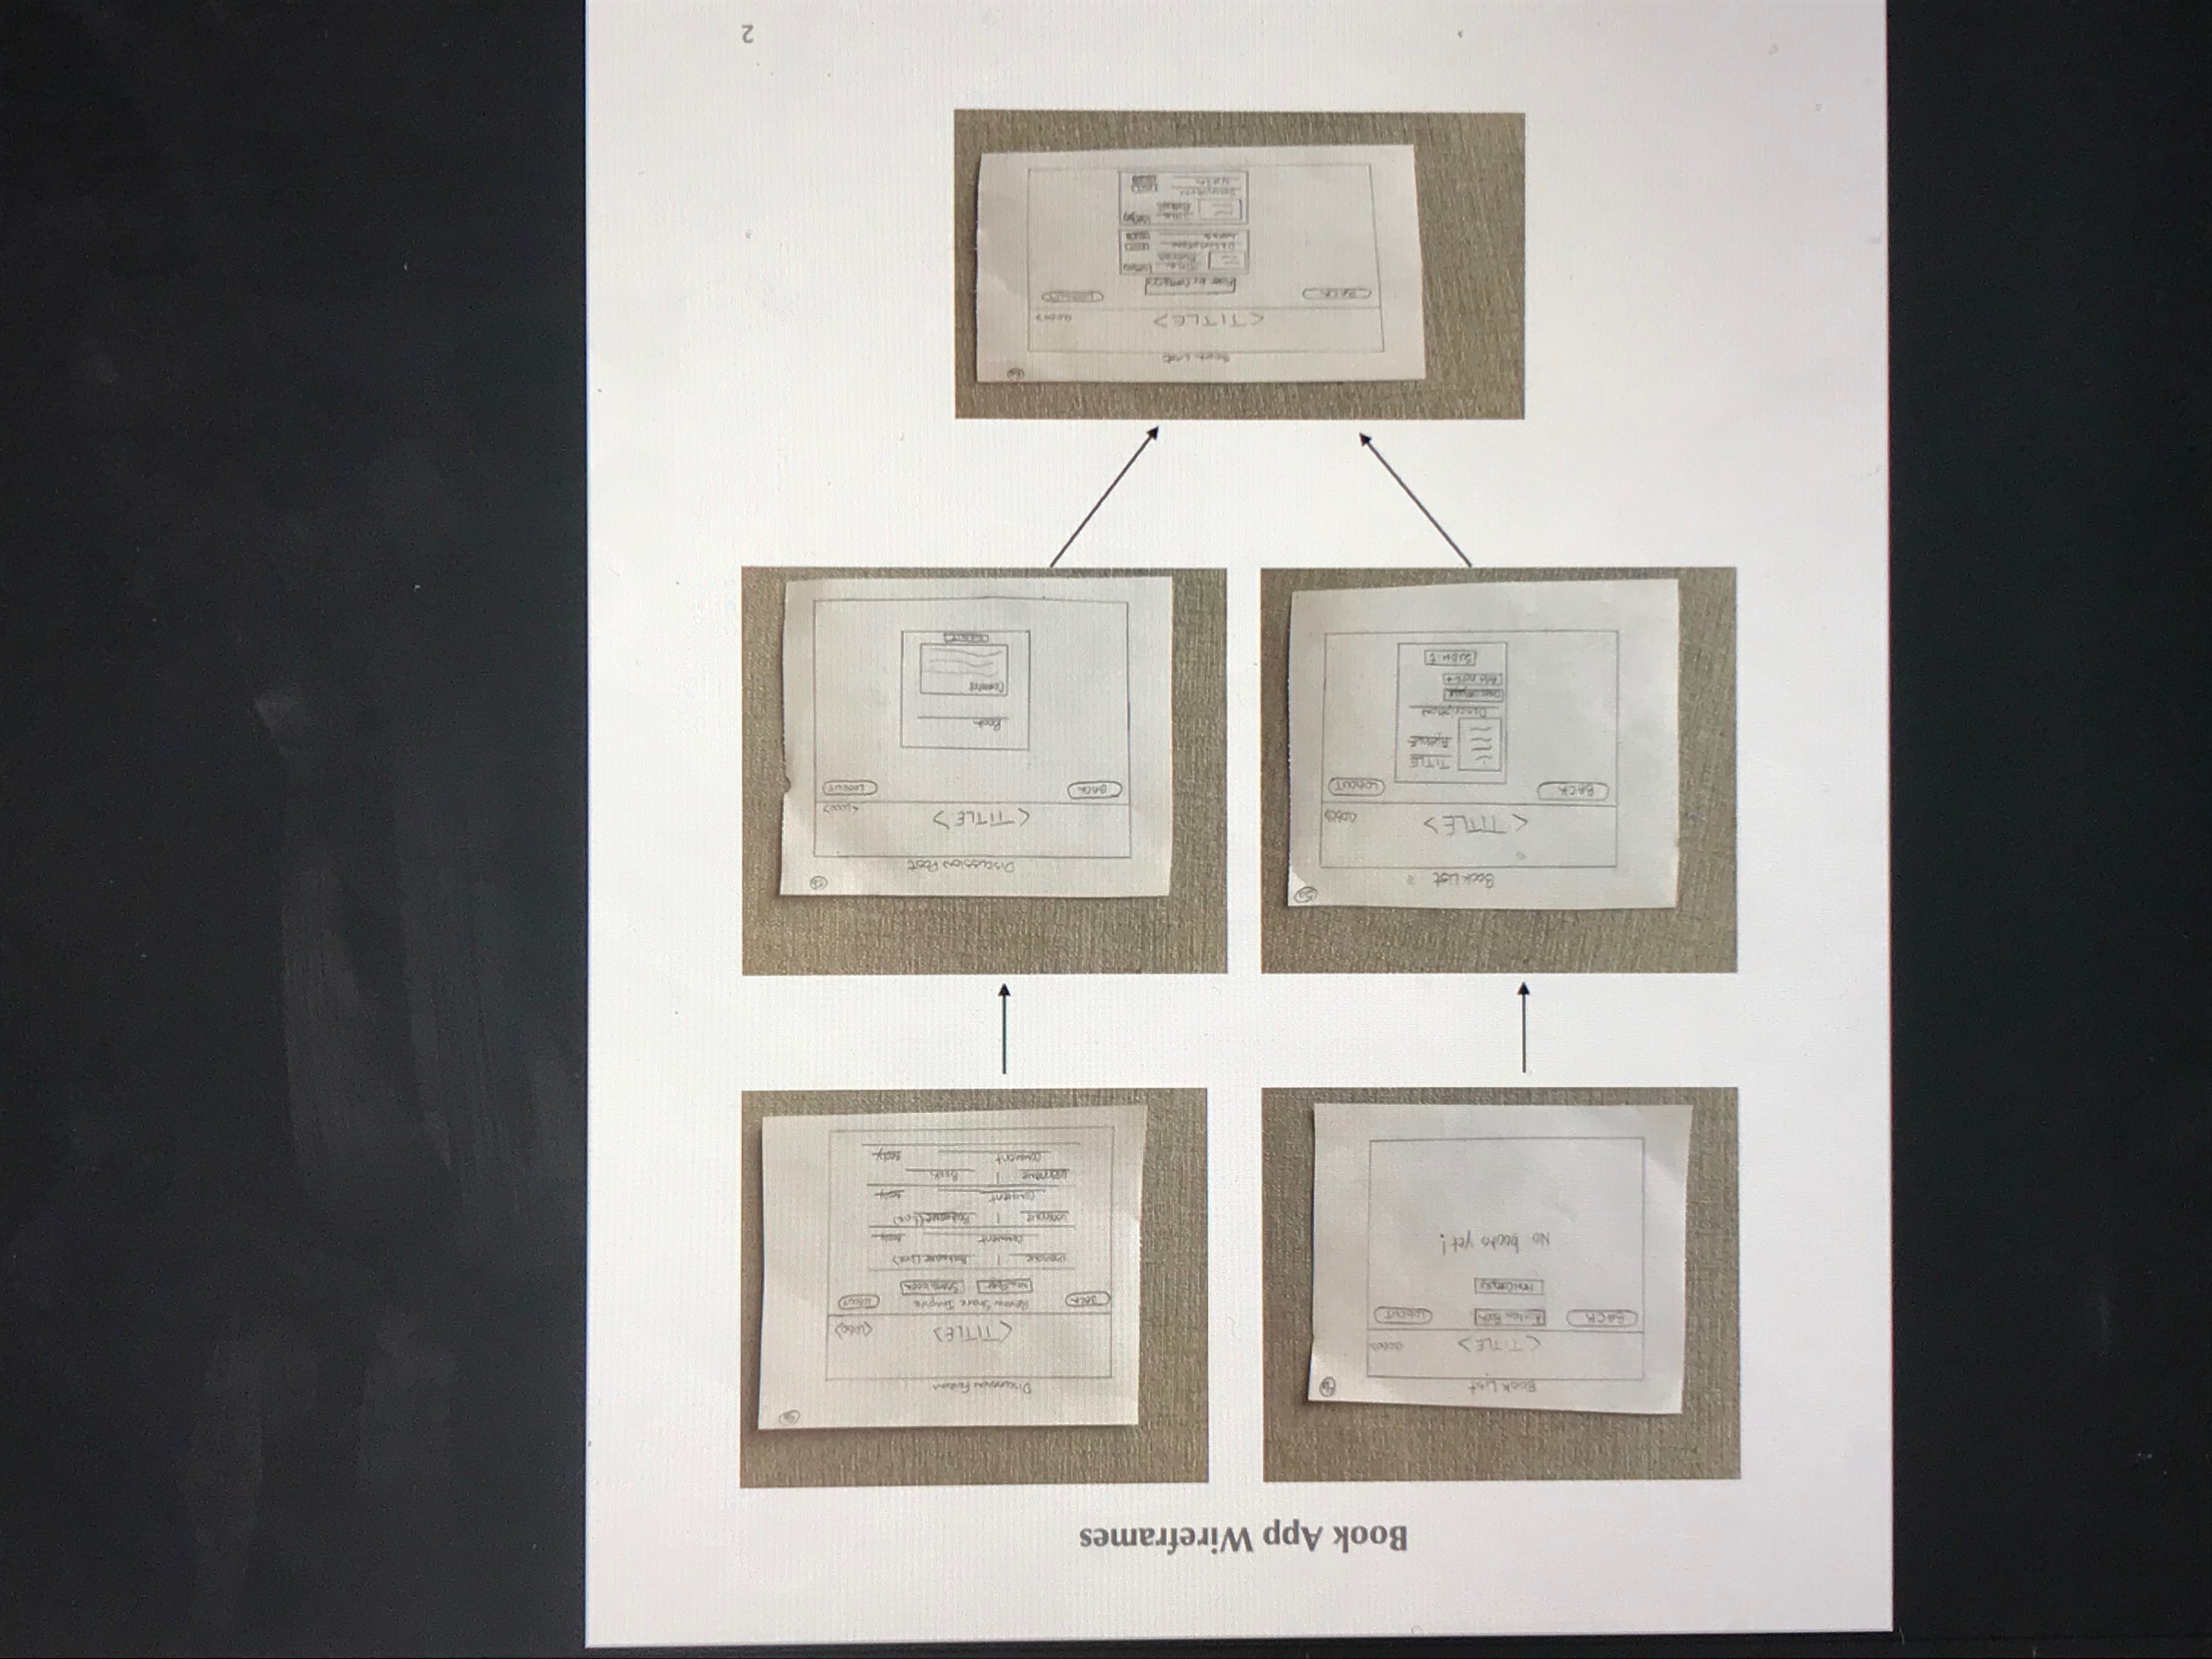 Book App Wireframes
Book List
<TITLE>
<LOGO>
BACK
LOGOUT
No books yet!
Discussion Forum
<TITLE>
<LOGO>
BACK
Review Share Inspire
LOGOUT
New Post
Search book
username | Bookname (link)
comment
Reply
username | Bookname (link)
comment
Reply
username | Book
comment
Reply
Book List
5a
<TITLE>
<LOGO>
BACK
LOGOUT
TITLE
Author
Description
Add note +
Submit
Discussion Post
5b
<TITLE>
<LOGO>
BACK
LOGOUT
Book
Comment
Book List
<TITLE>
<LOGO>
BACK
LOGOUT
Filter by Category
Title
Author
Description
Notes
Title
Author
Description
Notes
2